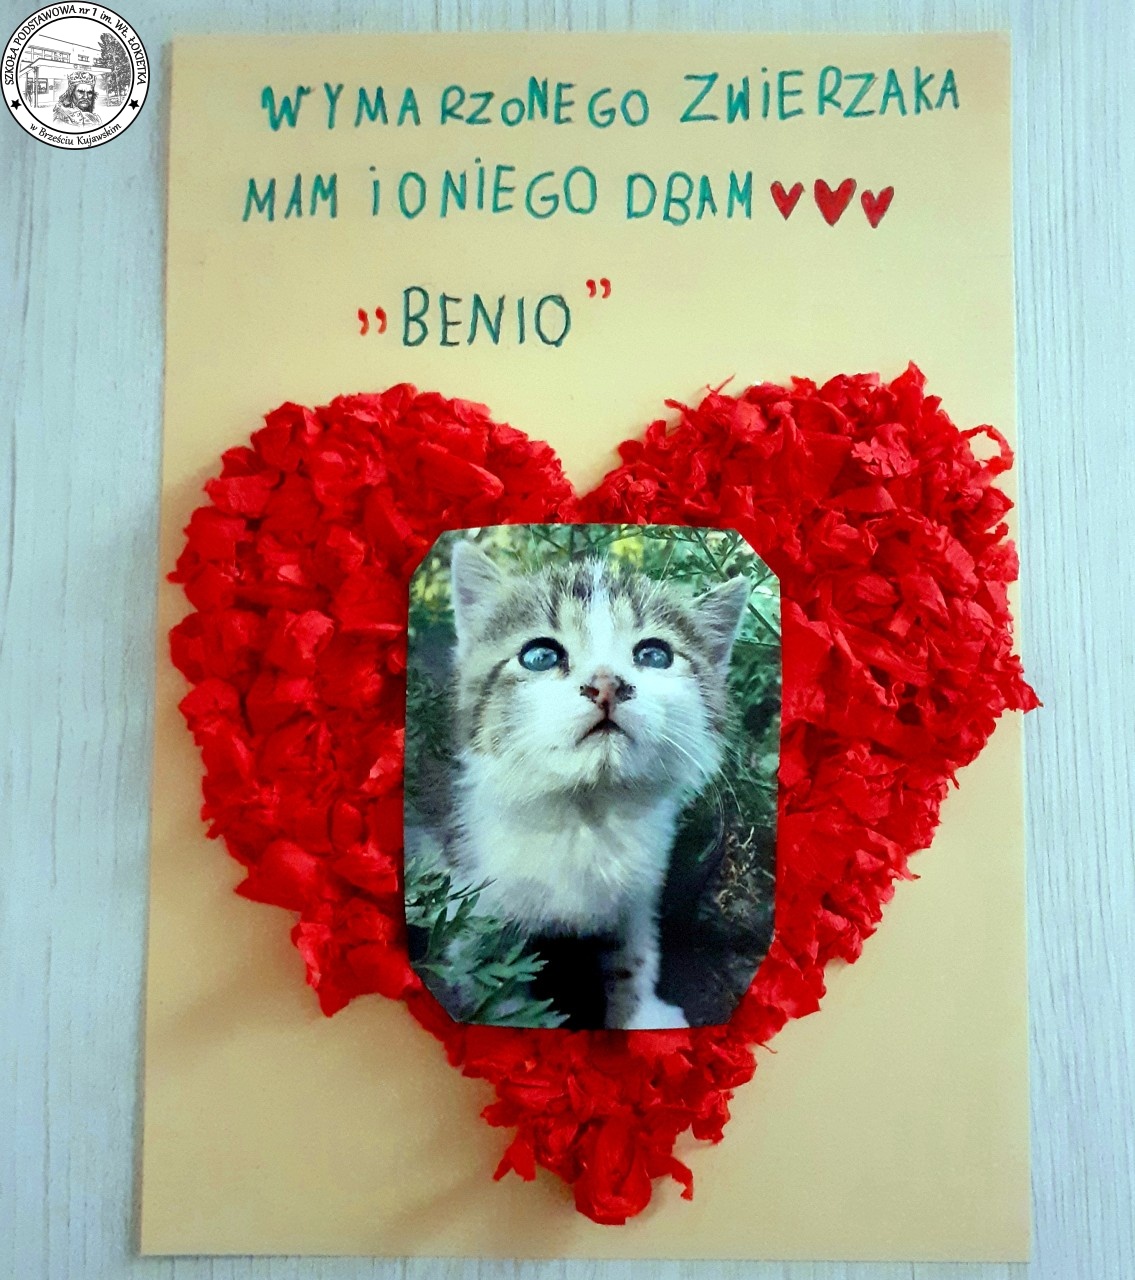 SZKOŁA PODSTAWOWA nr 1 im. WŁ. ŁOKIETKA
w Brześciu Kujawskim
WYMARZONEGO ZWiERZAKA
MAM i O NiEGO DBAM
,,BENIO”